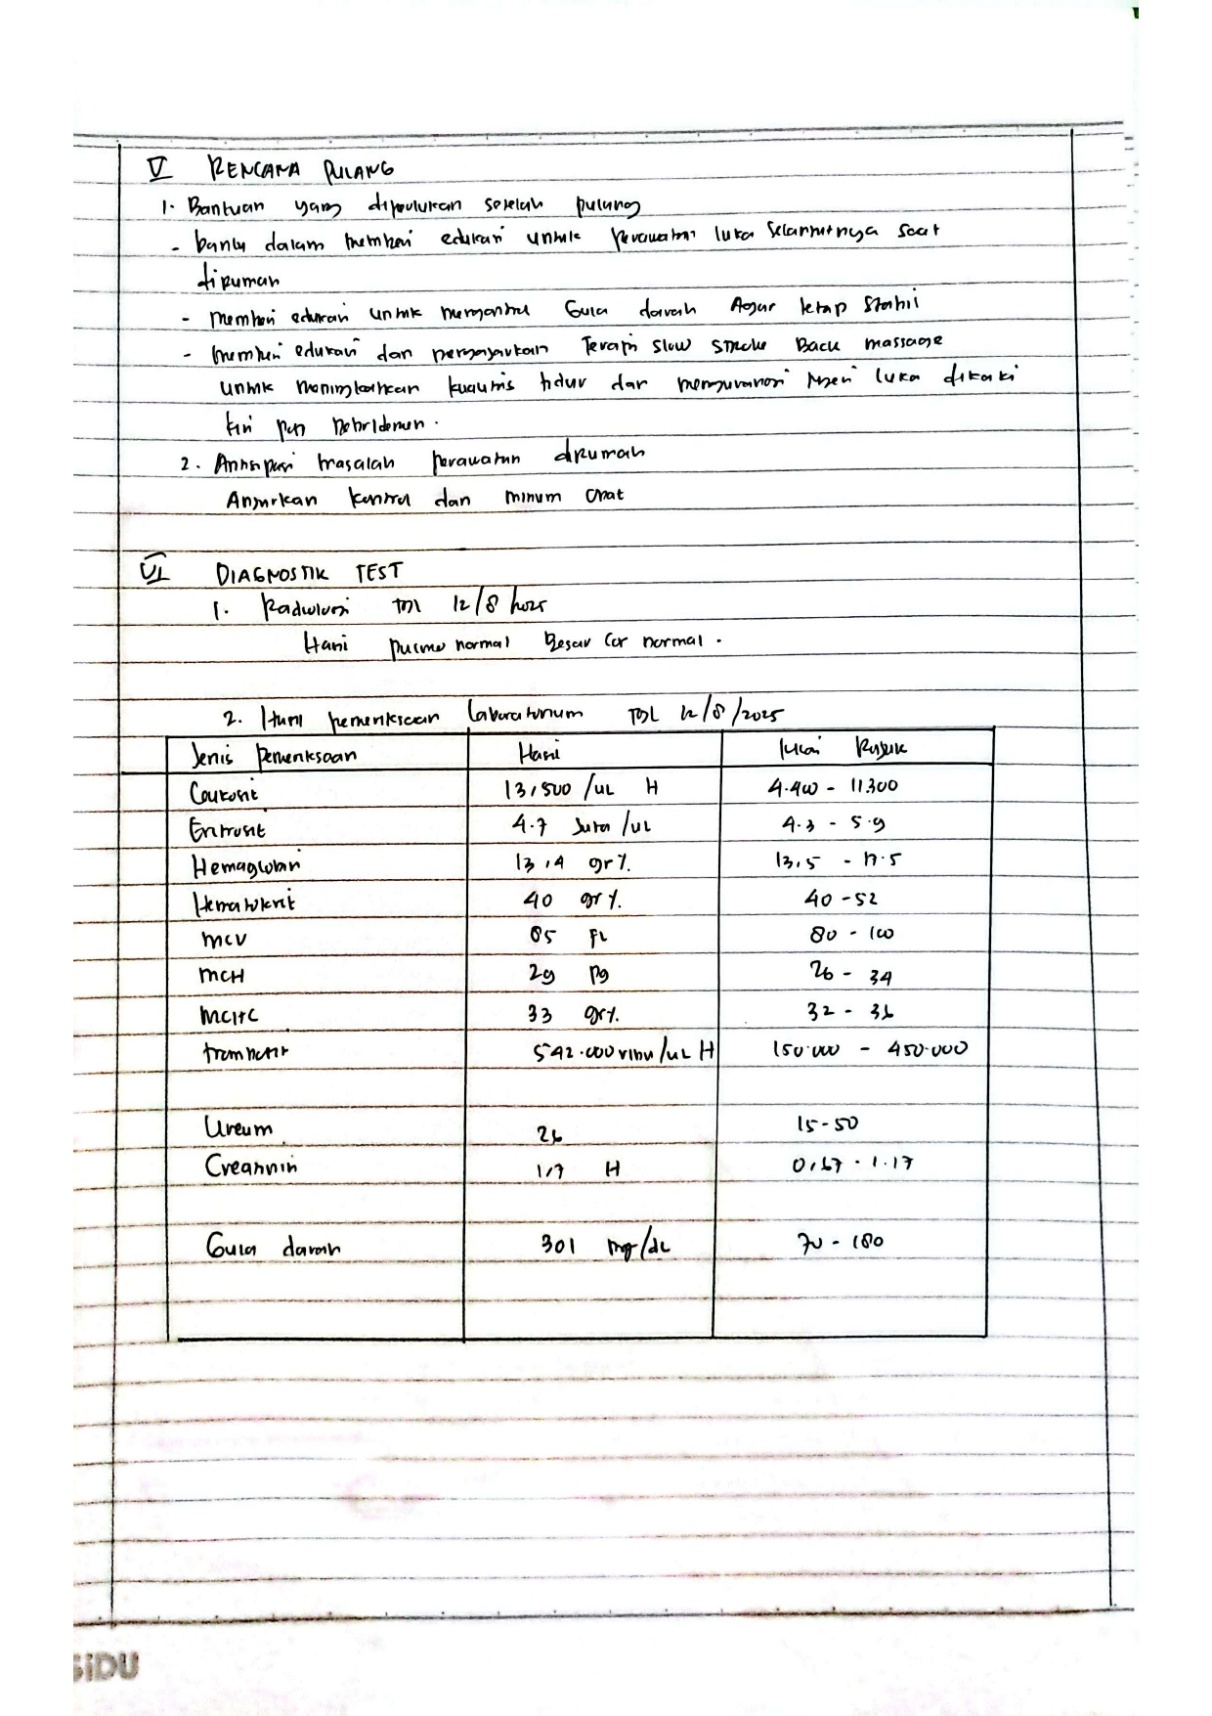 V RENCANA PULANG
1. Bantuan yang diperlukan setelah pulang
- bantu dalam memberi edukasi untuk perawatan luka selanjutnya saat
dirumah
- memberi edukasi untuk mengontrol Gula darah Agar tetap Stabil
- memberi edukasi dan mengajarkan Terapi Slow Stroke Back massage
untuk meningkatkan kualitas tidur dan mengurangi Nyeri luka dikaki
kiri post Debridemen.
2. Antisipasi masalah perawatan dirumah
Anjurkan kontrol dan minum obat
VI DIAGNOSTIK TEST
1. Radiologi Tgl 12/8/2025
Hasil pulmo normal Besar Cor normal.
2. Hasil pemeriksaan Laboratorium TGL 12/8/2025
Jenis Pemeriksaan Hasil Nilai Rujuk
Leukosit 13,500 /uL H 4.400 - 11.300
Eritrosit 4.7 Juta /uL 4.3 - 5.9
Hemaglobin 13,4 gr% 13,5 - 17.5
Hematokrit 40 gr% 40 - 52
MCV 85 FL 80 - 100
MCH 29 Pg 26 - 34
MCHC 33 gr% 32 - 36
trombosit 542.000 ribu /uL H 150.000 - 450.000
Ureum 26 15-50
Creatinin 1,7 H 0,67 - 1.17
Gula darah 301 mg/dL 70 - 180
SiDU